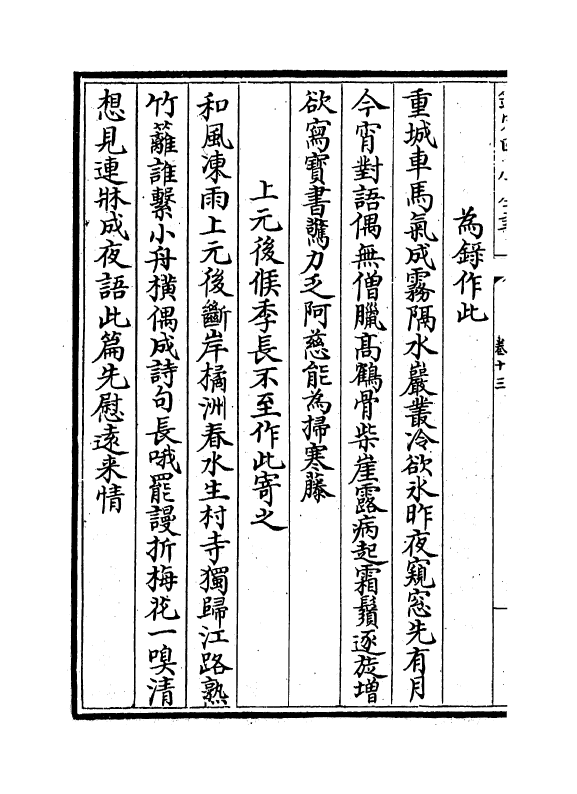 為錄作此
重城車馬氣成霧隔水巖叢冷欲冰昨夜窺窓先有月
今宵對語偶無僧臘高鶴骨柴崖露病起霜鬚逐旋增
欲寫寶書驚力乏阿慈能為掃寒藤
上元後候季長不至作此寄之
和風凍雨上元後斷岸橘洲春水生村寺獨歸江路熟
竹籬誰繫小舟橫偶成詩句長哦罷謾折梅花一嗅清
想見連牀成夜語此篇先慰遠来情
卷十三